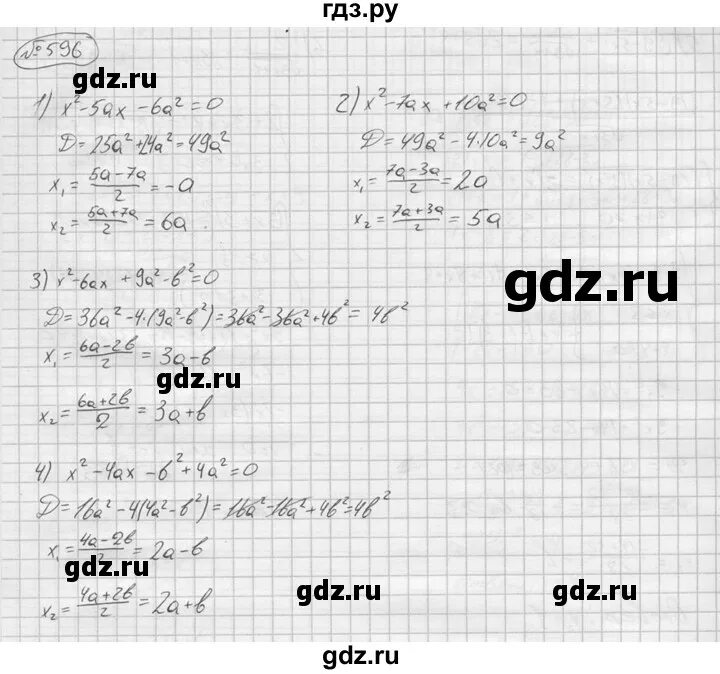 гдз.ру
№596
gdz.ru
1) x²-5ax-6a²=0
D=25a²+24a²=49a²
x₁ = (5a-7a)/2 = -a
x₂ = (5a+7a)/2 = 6a
2) x²-7ax+10a²=0
D=49a²-4·10a²=9a²
x₁ = (7a-3a)/2 = 2a
x₂ = (7a+3a)/2 = 5a
gdz.ru
3) x²-6ax+9a²-b²=0
D=36a²-4·(9a²-b²)=36a²-36a²+4b²=4b²
x₁ = (6a-2b)/2 = 3a-b
gdz.ru
x₂ = (6a+2b)/2 = 3a+b
4) x²-4ax-b²+4a²=0
D=16a²-4(4a²-b²)=16a²-16a²+4b²=4b²
x₁ = (4a-2b)/2 = 2a-b
gdz.ru
x₂ = (4a+2b)/2 = 2a+b
gdz.ru
gdz.ru
gdz.ru